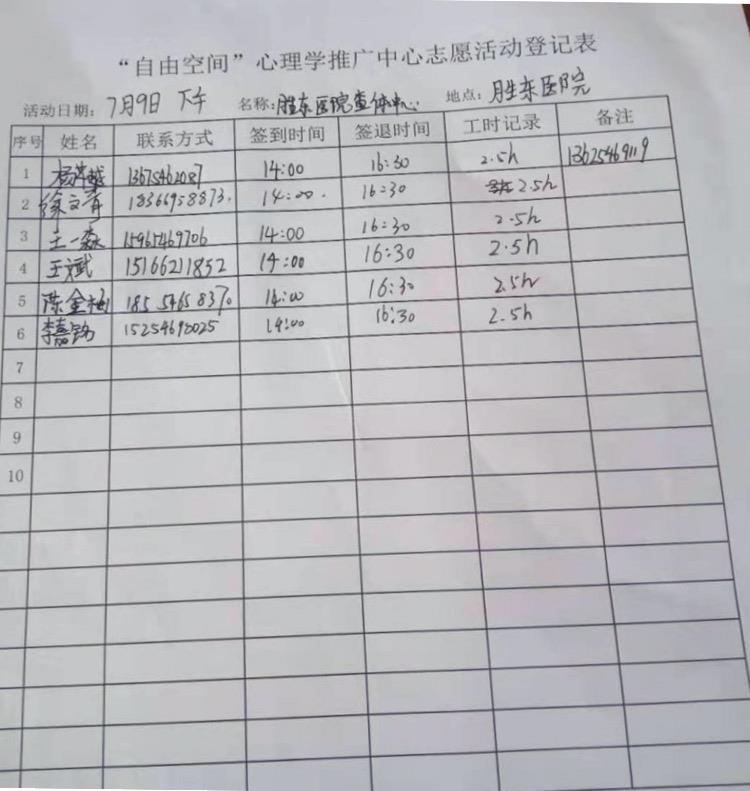 “自由空间”心理学推广中心志愿活动登记表
活动日期：7月9日 下午 名称：胜东医院查体中心 地点：胜东医院
序号 姓名 联系方式 签到时间 签退时间 工时记录 备注
1 杨洪越 13675462087 14:00 16:30 2.5h 13625469119
2 徐文青 18366958873. 14:00. 16:30 2.5h
3 王一淼 15961469706 14:00 16:30 2.5h
4 王斌 15166211852 14:00 16:30 2.5h
5 陈金梅 14:00 16:30 2.5h
6 李嘉铭 15254698025 14:00 16:30 2.5h
7
8
9
10